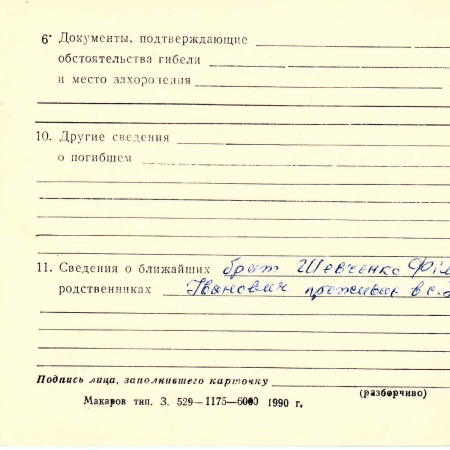 6. Документы, подтверждающие
обстоятельства гибели
и место захоронения
10. Другие сведения
о погибшем
11. Сведения о ближайших брат Шевченко
родственниках Іванович проживає в с.
Подпись лица, заполнившего карточку
(разборчиво)
Макаров тип. З. 529—1175—6000 1990 г.